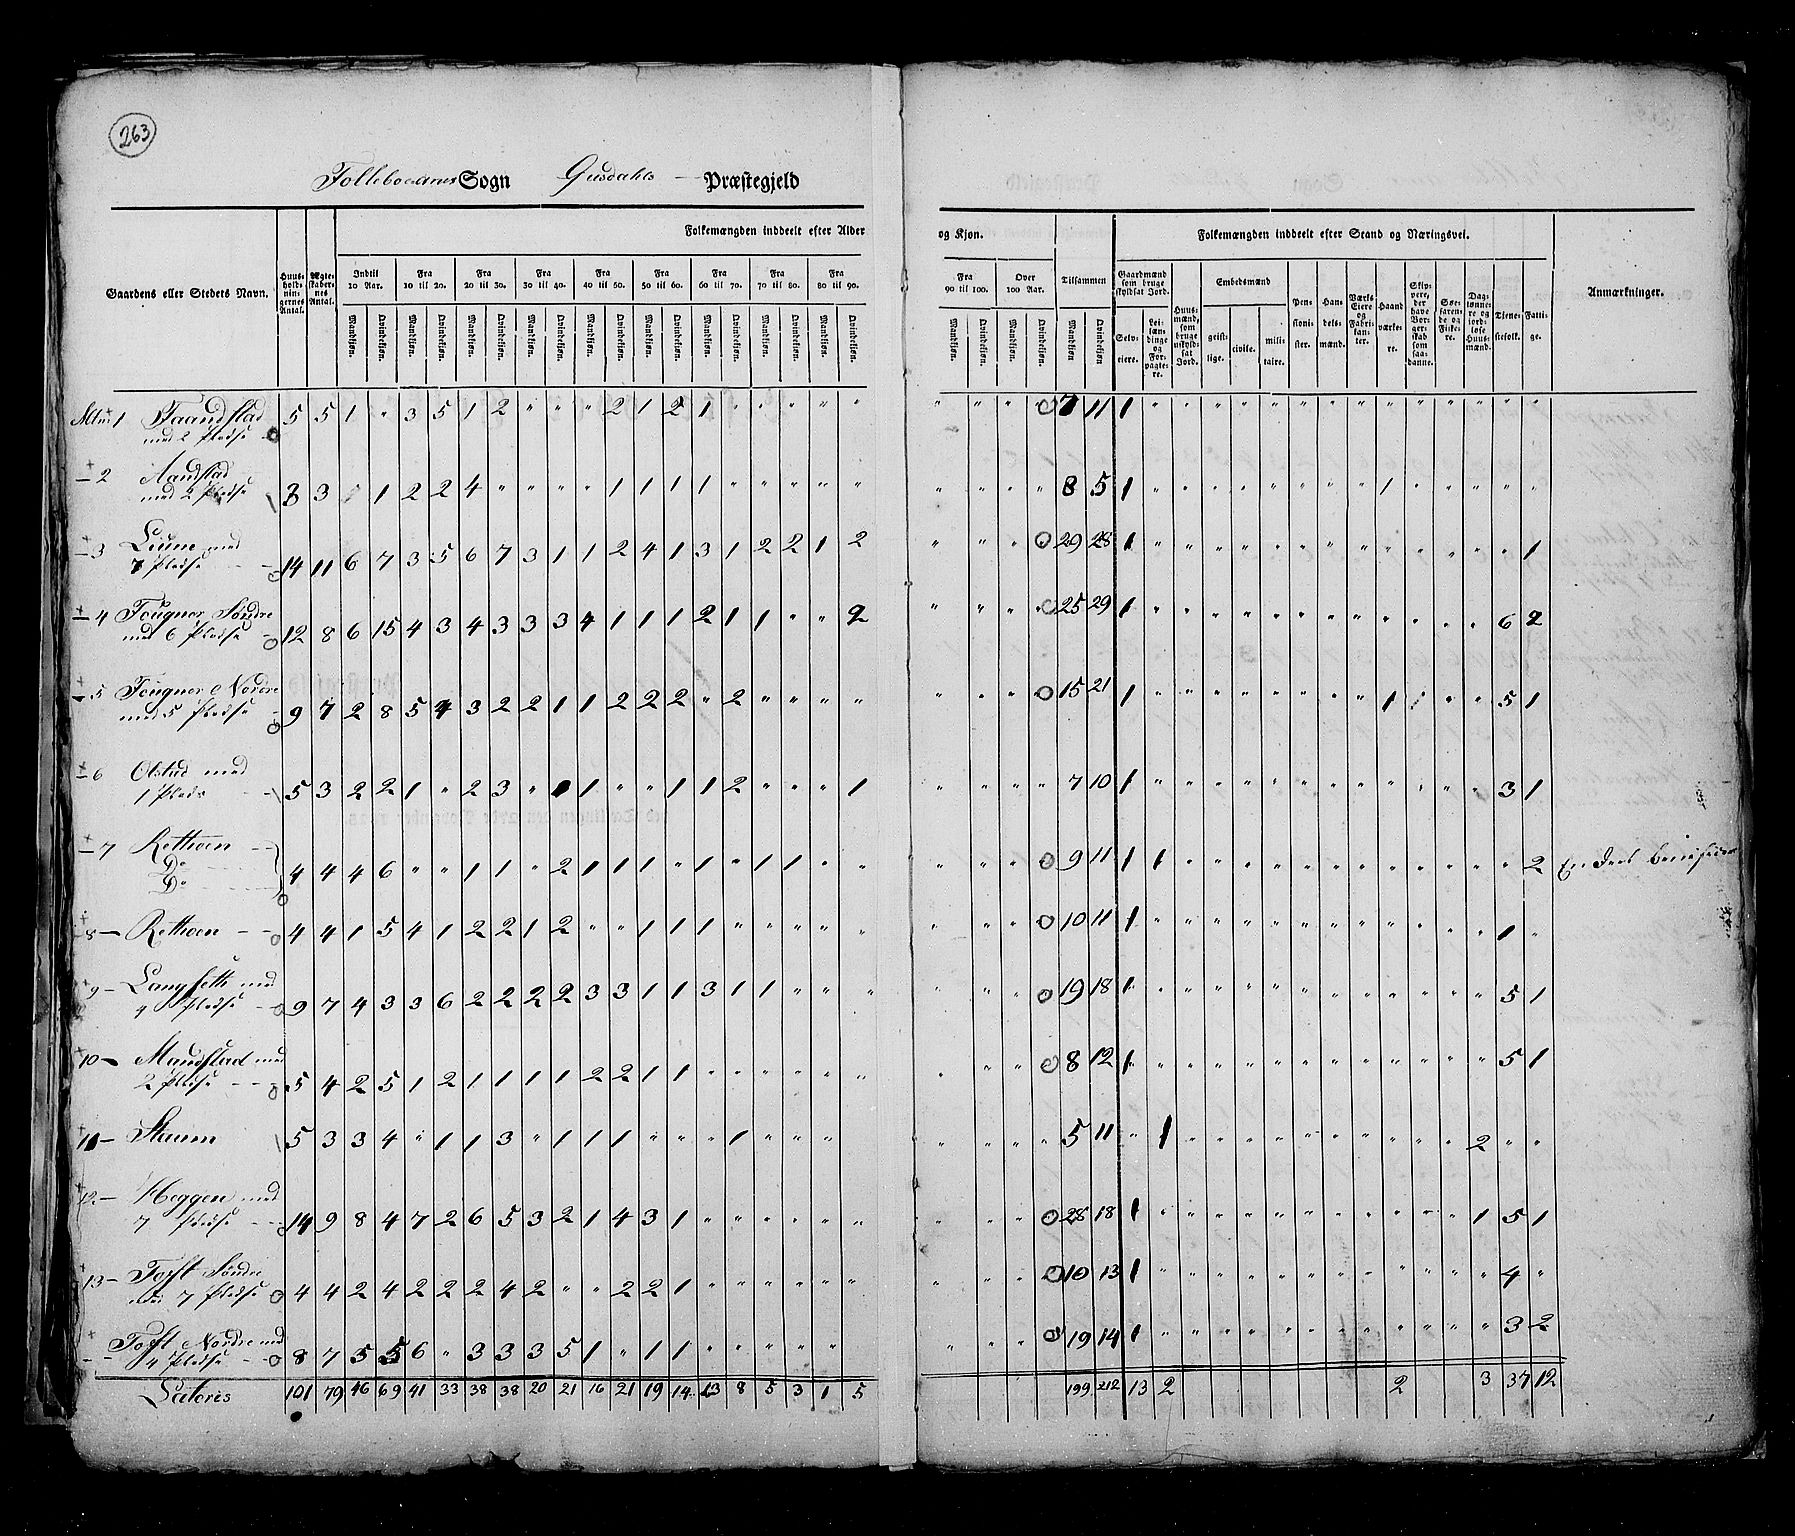 263
Sogn Præstegjeld
Gaardens eller Stedets Navn. Huus-holdnin-gernes Antal. Ægte-skaber-nes Antal. Folkemængden inddeelt efter Alder og Kjøn. Tilsammen Folkemængden inddeelt efter Stand og Næringsvei. Anmærkninger.
Indtil 10 Aar. Fra 10 til 20. Fra 20 til 30. Fra 30 til 40. Fra 40 til 50. Fra 50 til 60. Fra 60 til 70. Fra 70 til 80. Fra 80 til 90. Fra 90 til 100. Over 100 Aar.
Mandkjøn. Qvindekjøn. Mandkjøn. Qvindekjøn. Mandkjøn. Qvindekjøn. Mandkjøn. Qvindekjøn. Mandkjøn. Qvindekjøn. Mandkjøn. Qvindekjøn. Mandkjøn. Qvindekjøn. Mandkjøn. Qvindekjøn. Mandkjøn. Qvindekjøn. Mandkjøn. Qvindekjøn. Mandkjøn. Qvindekjøn. Mandkjøn Qvindekjøn.
Gaardmænd som bruge skyldsat Jord. Selv-eiere. Lei-lændinge og For-pagte-re. Huus-mænd, som bruge uskyld-sat Jord. Embedsmænd geist-lige. civile. mili-taire. Pen-sioni-ster. Han-dels-mænd. Værks Eiere og Fabri-kan-ter. Haand-værke-re. Skip-pere, der have Bor-ger-skab som saa-danne. Søe-farende og Fiske-re. Dag-lønne-re og jord-løse Huus-mænd. Tjene-stefolk. Fatti-ge.
1 5 5 1 " 3 5 1 2 " " " 2 1 2 1 " " " " " " " " 7 11 1
2 Aandstad med 2 Pladse 3 3 1 2 2 4 " " " " 1 1 1 1 " " " " " 8 5 1 1
3 med 7 Pladse 14 11 6 7 3 5 6 7 3 1 1 2 4 1 3 1 2 2 1 2 29 28 1 1
4 Fougner Søndre med 6 Pladse 12 8 6 15 4 3 4 3 3 3 4 1 1 1 2 1 1 " " 2 25 29 1 6 2
5 Fougner Nordre med 5 Pladse 9 7 2 8 5 4 3 2 2 1 1 2 2 2 " 2 " " " " 15 21 1 1 5 1
6 Olstad med 1 Plads 5 3 2 2 1 " 2 3 " 1 1 " " 1 1 2 " " " 1 7 10 1 3 1
7 Rethoen Do Do 4 4 4 6 " " 1 1 " 2 1 1 1 " 1 " 1 1 " " 9 11 1 1 2 En Deel
8 Rethoen 4 4 1 5 4 1 2 2 1 2 " " 1 1 1 " " " " " 10 11 1 1
9 Langseth med 4 Pladse 9 7 4 3 3 6 2 2 2 2 3 3 1 1 3 1 1 " " " 19 18 1 5 1
10 med 2 Pladse 5 4 2 5 1 2 1 1 1 1 2 2 1 1 " " " " " " 8 12 1 5 1
11 5 3 3 4 " 1 1 3 " 1 1 1 " " " 1 " " " 5 11 " 1 2
12 Heggen med 7 Pladse 14 9 8 4 7 2 6 5 3 2 1 4 3 1 " " " " " " 28 18 1 1 5 1
13 Søndre med 7 Pladse 4 4 2 4 2 2 2 4 2 " " 2 2 1 " " " " " " 10 13 1 4
Nordre med 4 Pladse 8 7 5 5 6 " 3 3 3 5 1 " 1 1 " " " " 19 14 1 3 2
Lateris 101 79 46 69 41 33 38 38 20 21 16 21 19 14 13 8 5 3 1 5 199 212 13 2 2 3 37 12